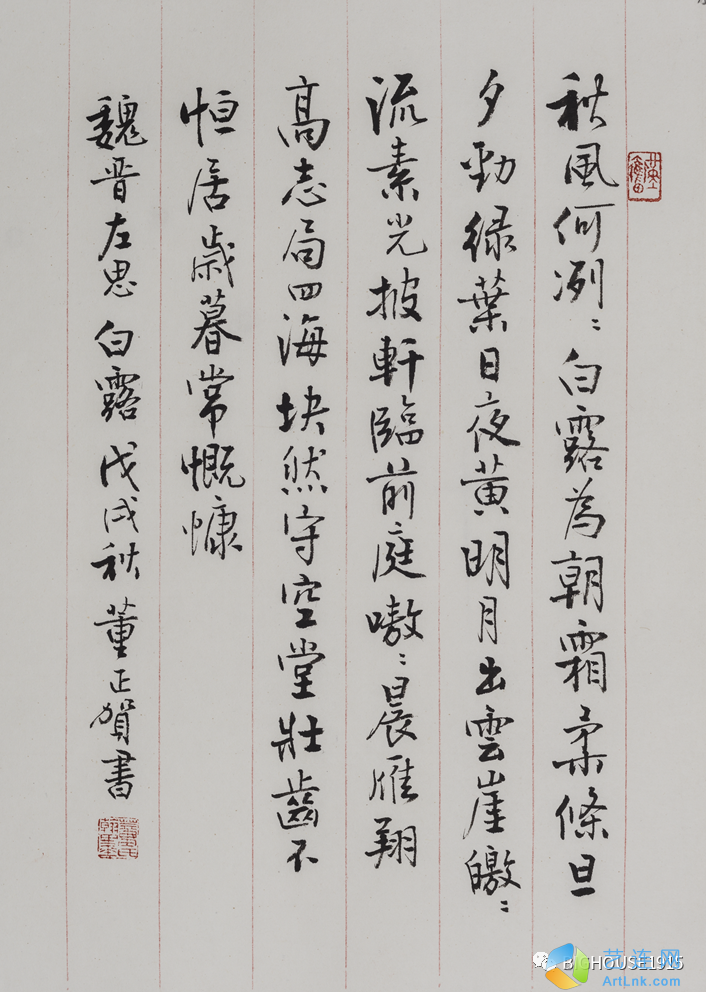 秋風何冽〻白露為朝霜柔條旦
夕勁緑葉日夜黄明月出雲崖皦〻
流素光披軒臨前庭嗷〻晨雁翔
高志局四海块然守空堂壯齒不
恒居歲暮常慨慷
魏晋左思 白露 戊戌秋 董正賀書
BIGHOUSE1915
艺连网
ArtLnk.com